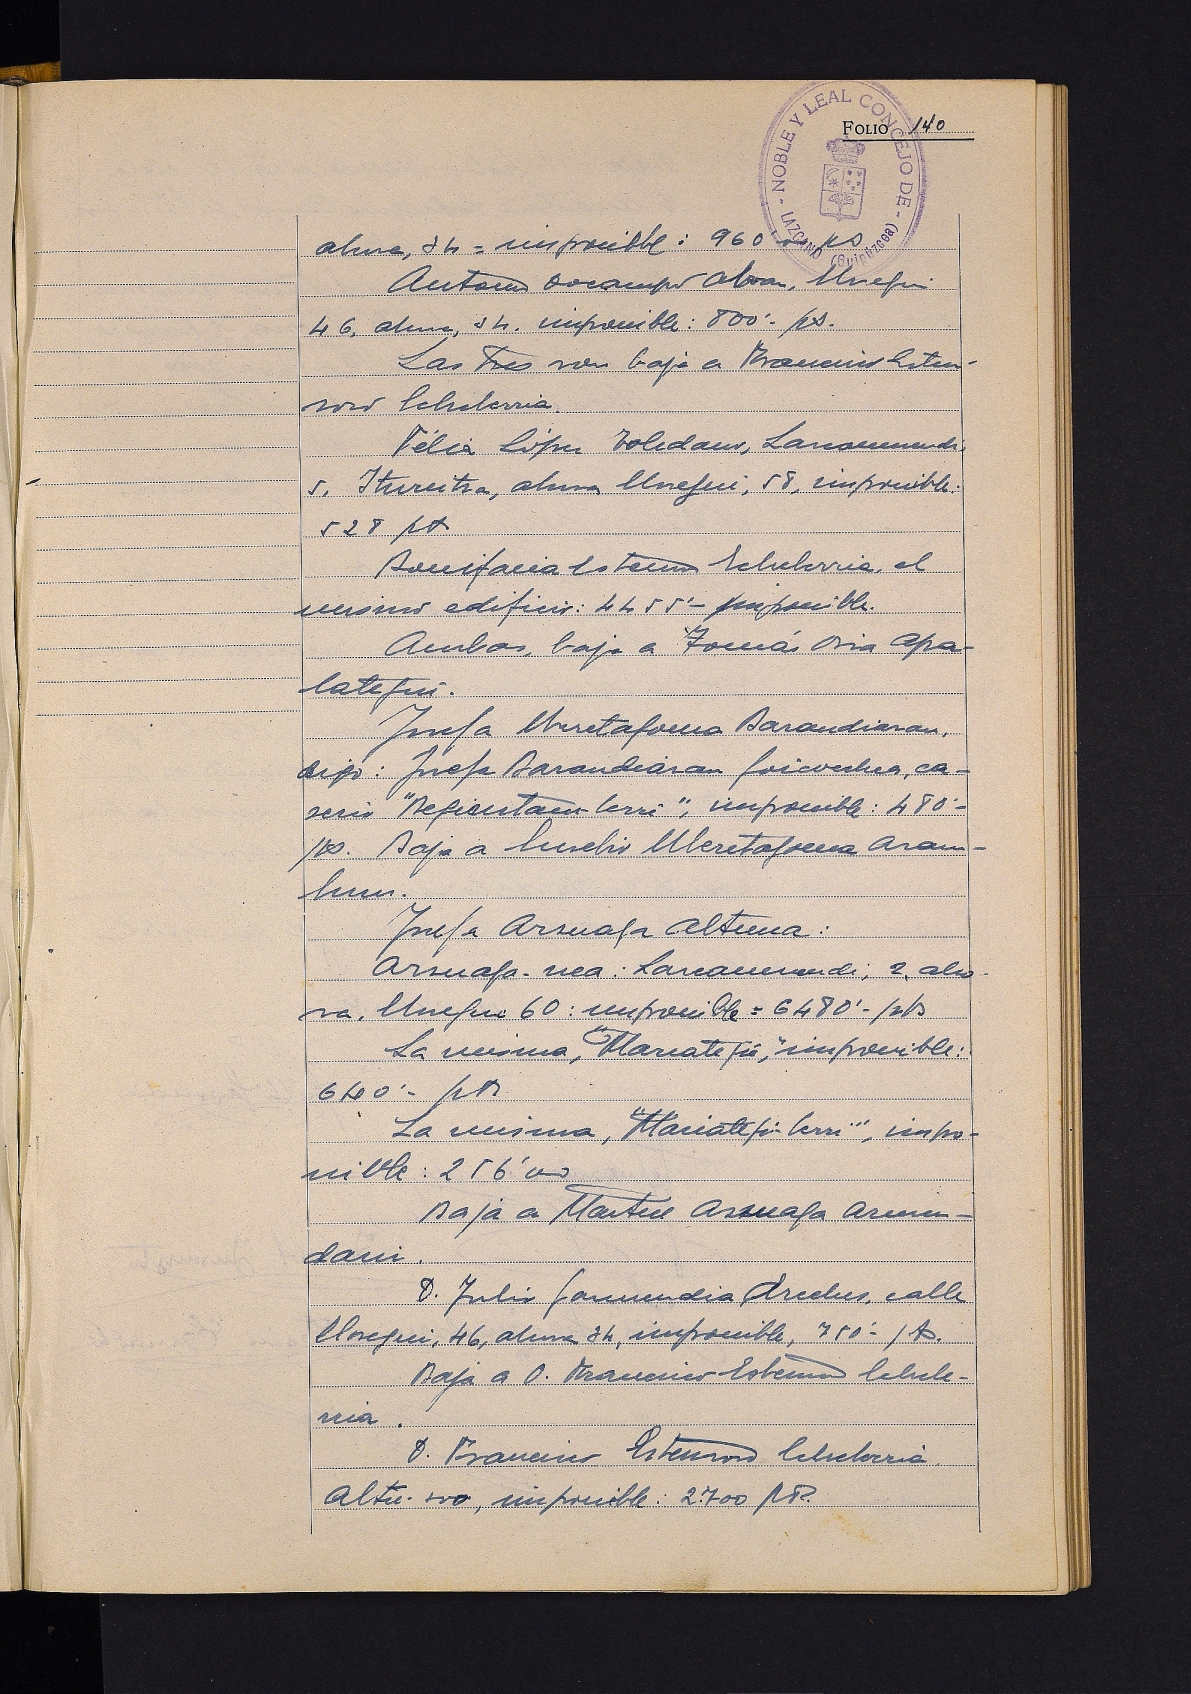 FOLIO 140
- NOBLE Y LEAL CONCEJO DE -
LAZCANO (Guipúzcoa)
ahora, 34 = imponible: 960 ptas
Antonio Docampo Urregui
46, ahora, 34. imponible: 800'- pts.
Las tres son baja a Francisco Esten-
soro Echeberria.
Félix López Toledano, Lazcanomendi,
5. Iturritza, ahora Urregui, 58, imponible:
528 pts
Bonifacia Estensoro Echeberria, el
mismo edificio: 4455'- imponible.
Ambos, baja a Tomás Oria Apa-
lategui.
Josefa Mendia Barandiaran,
digo: Josefa Barandiaran Goicoechea, ca-
serio " berri", imponible: 480'-
pts. Baja a Eusebio Aram-
buru.
Josefa Arsuaga Altuna:
Arsuaga-nea: Lazcanomendi, 2, aho-
ra, Urregui 60: imponible = 6480'- pts
La misma, "Mariategui," imponible:
640'- pts
La misma, "Mariategi-berri", impo-
nible: 256'00
Baja a Martin Arsuaga Armen-
dariz.
D. Julio Garmendia calle
Urregui, 46, ahora 34, imponible, 750'- pts.
Baja a D. Francisco Estensoro Echebe-
rria.
D. Francisco Estensoro Echeberria.
Altu- imponible: 2.700 pts.